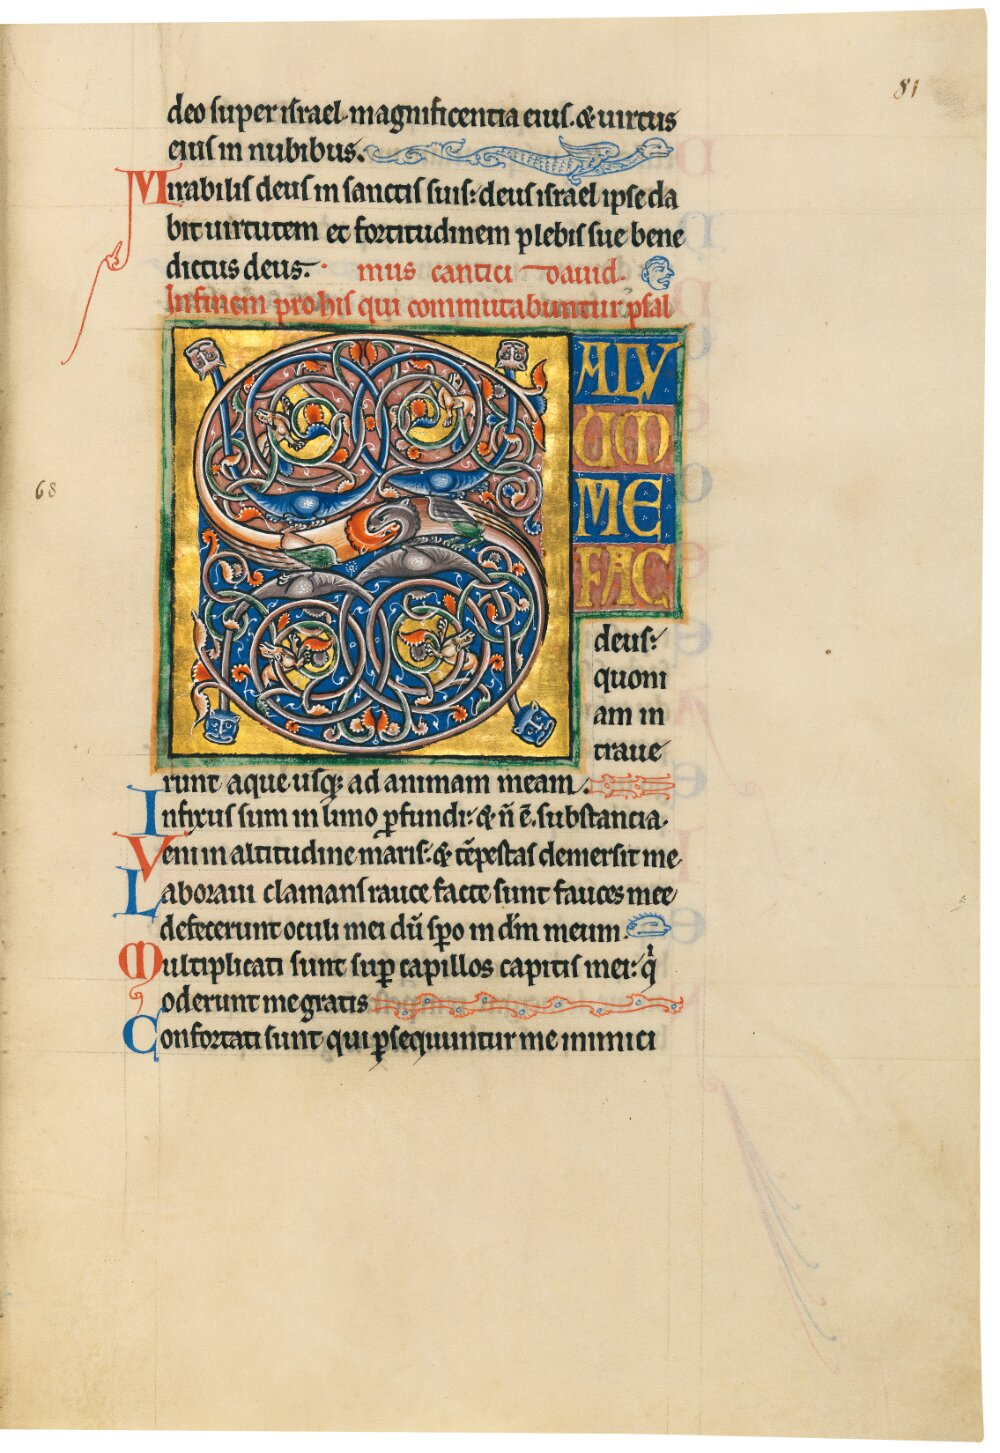 81
deo super israel. magnificentia eius. & uirtus
eius in nubibus.
Mirabilis deus in sanctis suis: deus israel ipse da
bit uirtutem et fortitudinem plebis sue bene
dictus deus. mus cantici dauid.
In finem pro his qui commutabuntur psal
SALV
UM
ME
FAC
68
deus:
quoni
am in
traue
runt aque usq; ad animam meam.
Infixus sum in limo ꝓfundi: & n̄ ē. substancia.
Veni in altitudine maris: & tēpestas demersit me
Laboraui clamans rauce facte sunt fauces mee
defecerunt oculi mei dū sp̄o in dm̄ meum.
Multiplicati sunt suꝑ capillos capitis mei: q̇
oderunt me gratis
Confortati sunt qui ꝑsequuntur me inimici